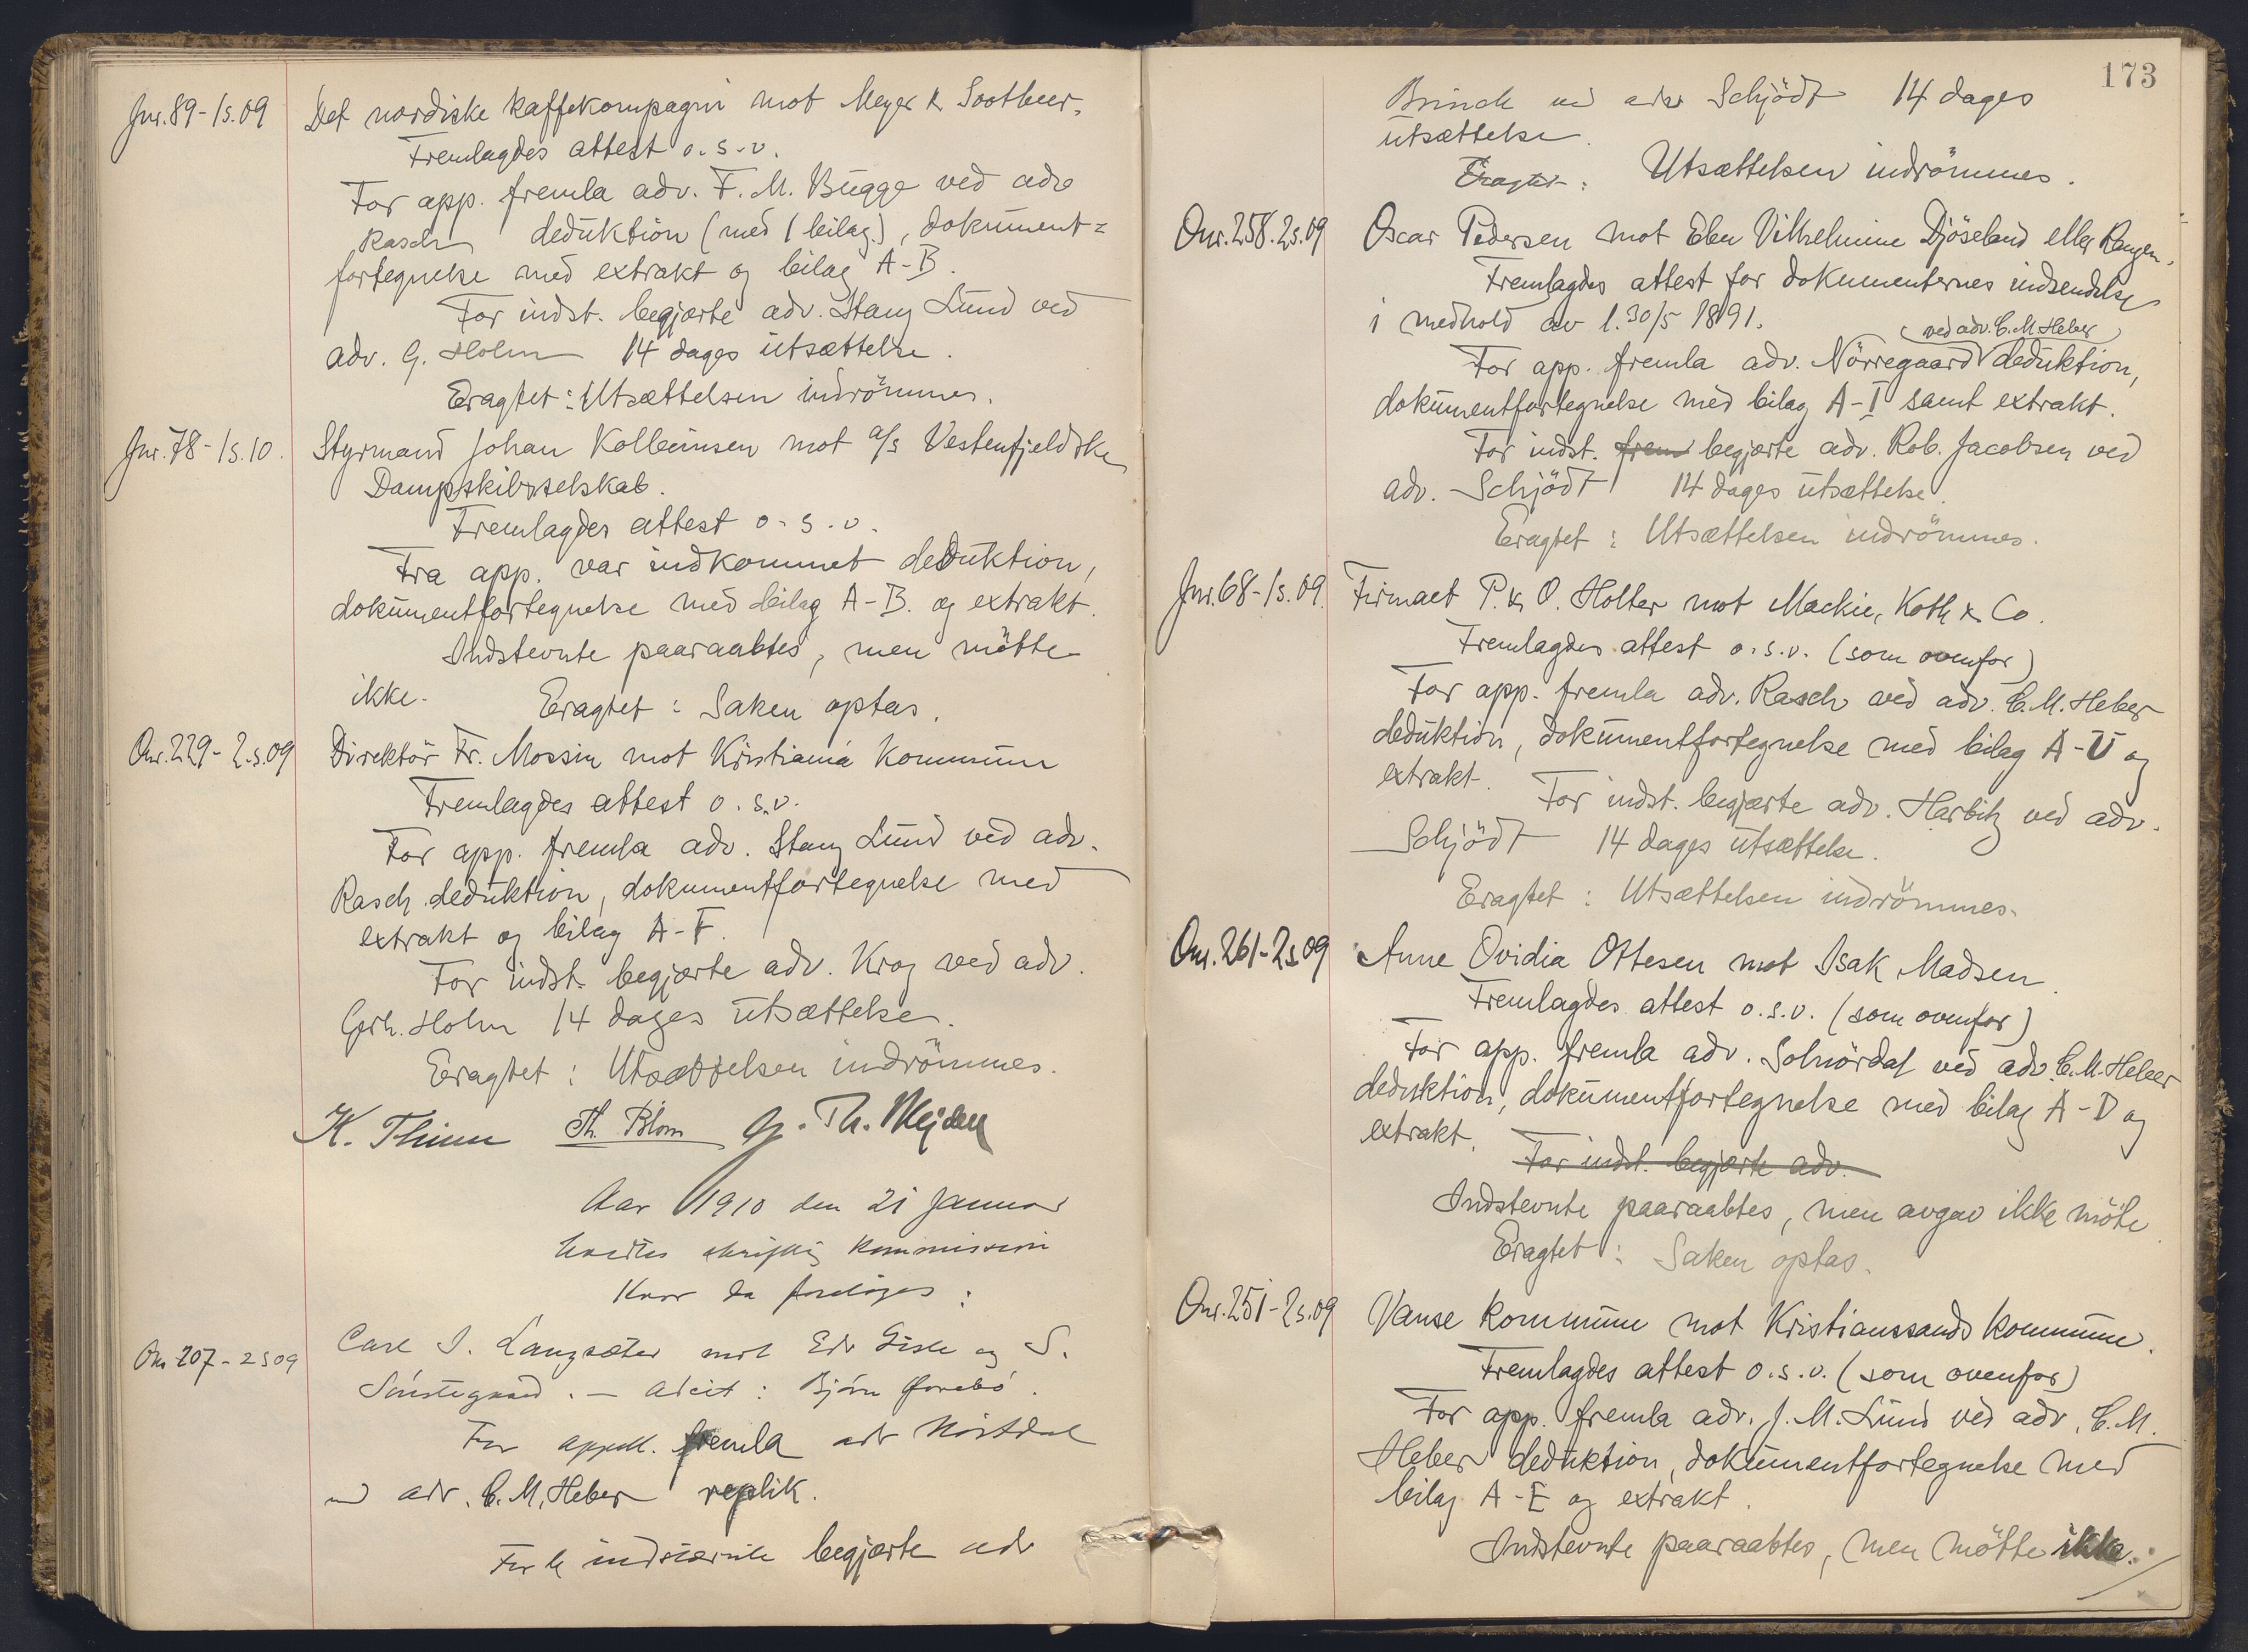 Jnr. 89 - 1s. 09
Det nordiske kaffekompagni mot Meyer & Sootbeer.
Fremlagdes attest o. s. v.
For app. fremla adv. F. M. Bugge ved adv
Rasch deduktion (med 1 bilag), dokument=
fortegnelse med extrakt og bilag A-B.
For indst. begjærte adv. Stang Lund ved
adv. G. Holm 14 dages utsættelse.
Eragtet: Utsættelsen indrömmes.
Jnr. 78 - 1s. 10.
Styrmand Johan Kolbeinsen mot a/s Vestenfjeldske
Dampskibsselskab.
Fremlagdes attest o. s. v.
Fra app. var indkommet deduktion,
dokumentfortegnelse med bilag A-B. og extrakt.
Indstevnte paaraabtes, men mötte
ikke. Eragtet: Saken optas.
Onr. 229 - 2.s. 09
Direktör Fr. Mossin mot Kristiania Kommune
Fremlagdes attest o. s. v.
For app. fremla adv. Stang Lund ved adv.
Rasch deduktion, dokumentfortegnelse med
extrakt og bilag A-F.
For indst. begjærte adv. Krog ved adv.
Gerh. Holm 14 dages utsættelse.
Eragtet: Utsættelsen indrömmes.
K. Thinn Th. Blom
Aar 1910 den 21 Januar
holdtes skriftlig kommission
hvor da foretoges:
Onr 207 - 2 s 09
Carl I. Langsæter mot Edv og S.
For appell. fremla adv
ved adv. C. M. Heber replik.
For de indstævnte begjærte adv
173
Brinch ved adv Schjödt 14 dages
utsættelse.
Eragtet: Utsættelsen indrömmes.
Onr. 258. 2s. 09
Oscar Pedersen mot Ebu Vilhelmine Djöseland eller
Fremlagdes attest for dokumenternes indsendelse
i medhold av l. 30/5 1891.
ved adv. C. M. Heber
For app. fremla adv. Nörregaard deduktion,
dokumentfortegnelse med bilag A-I samt extrakt.
For indst. frem begjærte adv. Rob. Jacobsen ved
adv. Schjödt 14 dages utsættelse.
Eragtet: Utsættelsen indrömmes.
Jnr. 68 - 1s. 09.
Firmaet P. & O. Holter mot Mackie, Koth & Co.
Fremlagdes attest o. s. v. (som ovenfor)
For app. fremla adv. Rasch ved adv. C. M. Heber
deduktion, dokumentfortegnelse med bilag A-U og
extrakt. For indst. begjærte adv. Harbitz ved adv.
Schjödt 14 dages utsættelse.
Eragtet: Utsættelsen indrömmes.
Onr. 261 - 2s 09
Anne Ovidia Ottesen mot Isak Madsen.
Fremlagdes attest o. s. v. (som ovenfor)
For app. fremla adv. Solnördal ved adv. C. M. Heber
deduktion, dokumentfortegnelse med bilag A-D og
extrakt.
For indst. begjærte adv.
Indstevnte paaraabtes, men avgav ikke möte.
Eragtet: Saken optas.
Onr. 251 - 2s. 09
Vanse kommune mot Kristianssands kommune.
Fremlagdes attest o. s. v. (som ovenfor)
For app. fremla adv. J. M. Lund ved adv. C. M.
Heber deduktion, dokumentfortegnelse med
bilag A-E og extrakt.
Indstevnte paaraabtes, men mötte ikke.